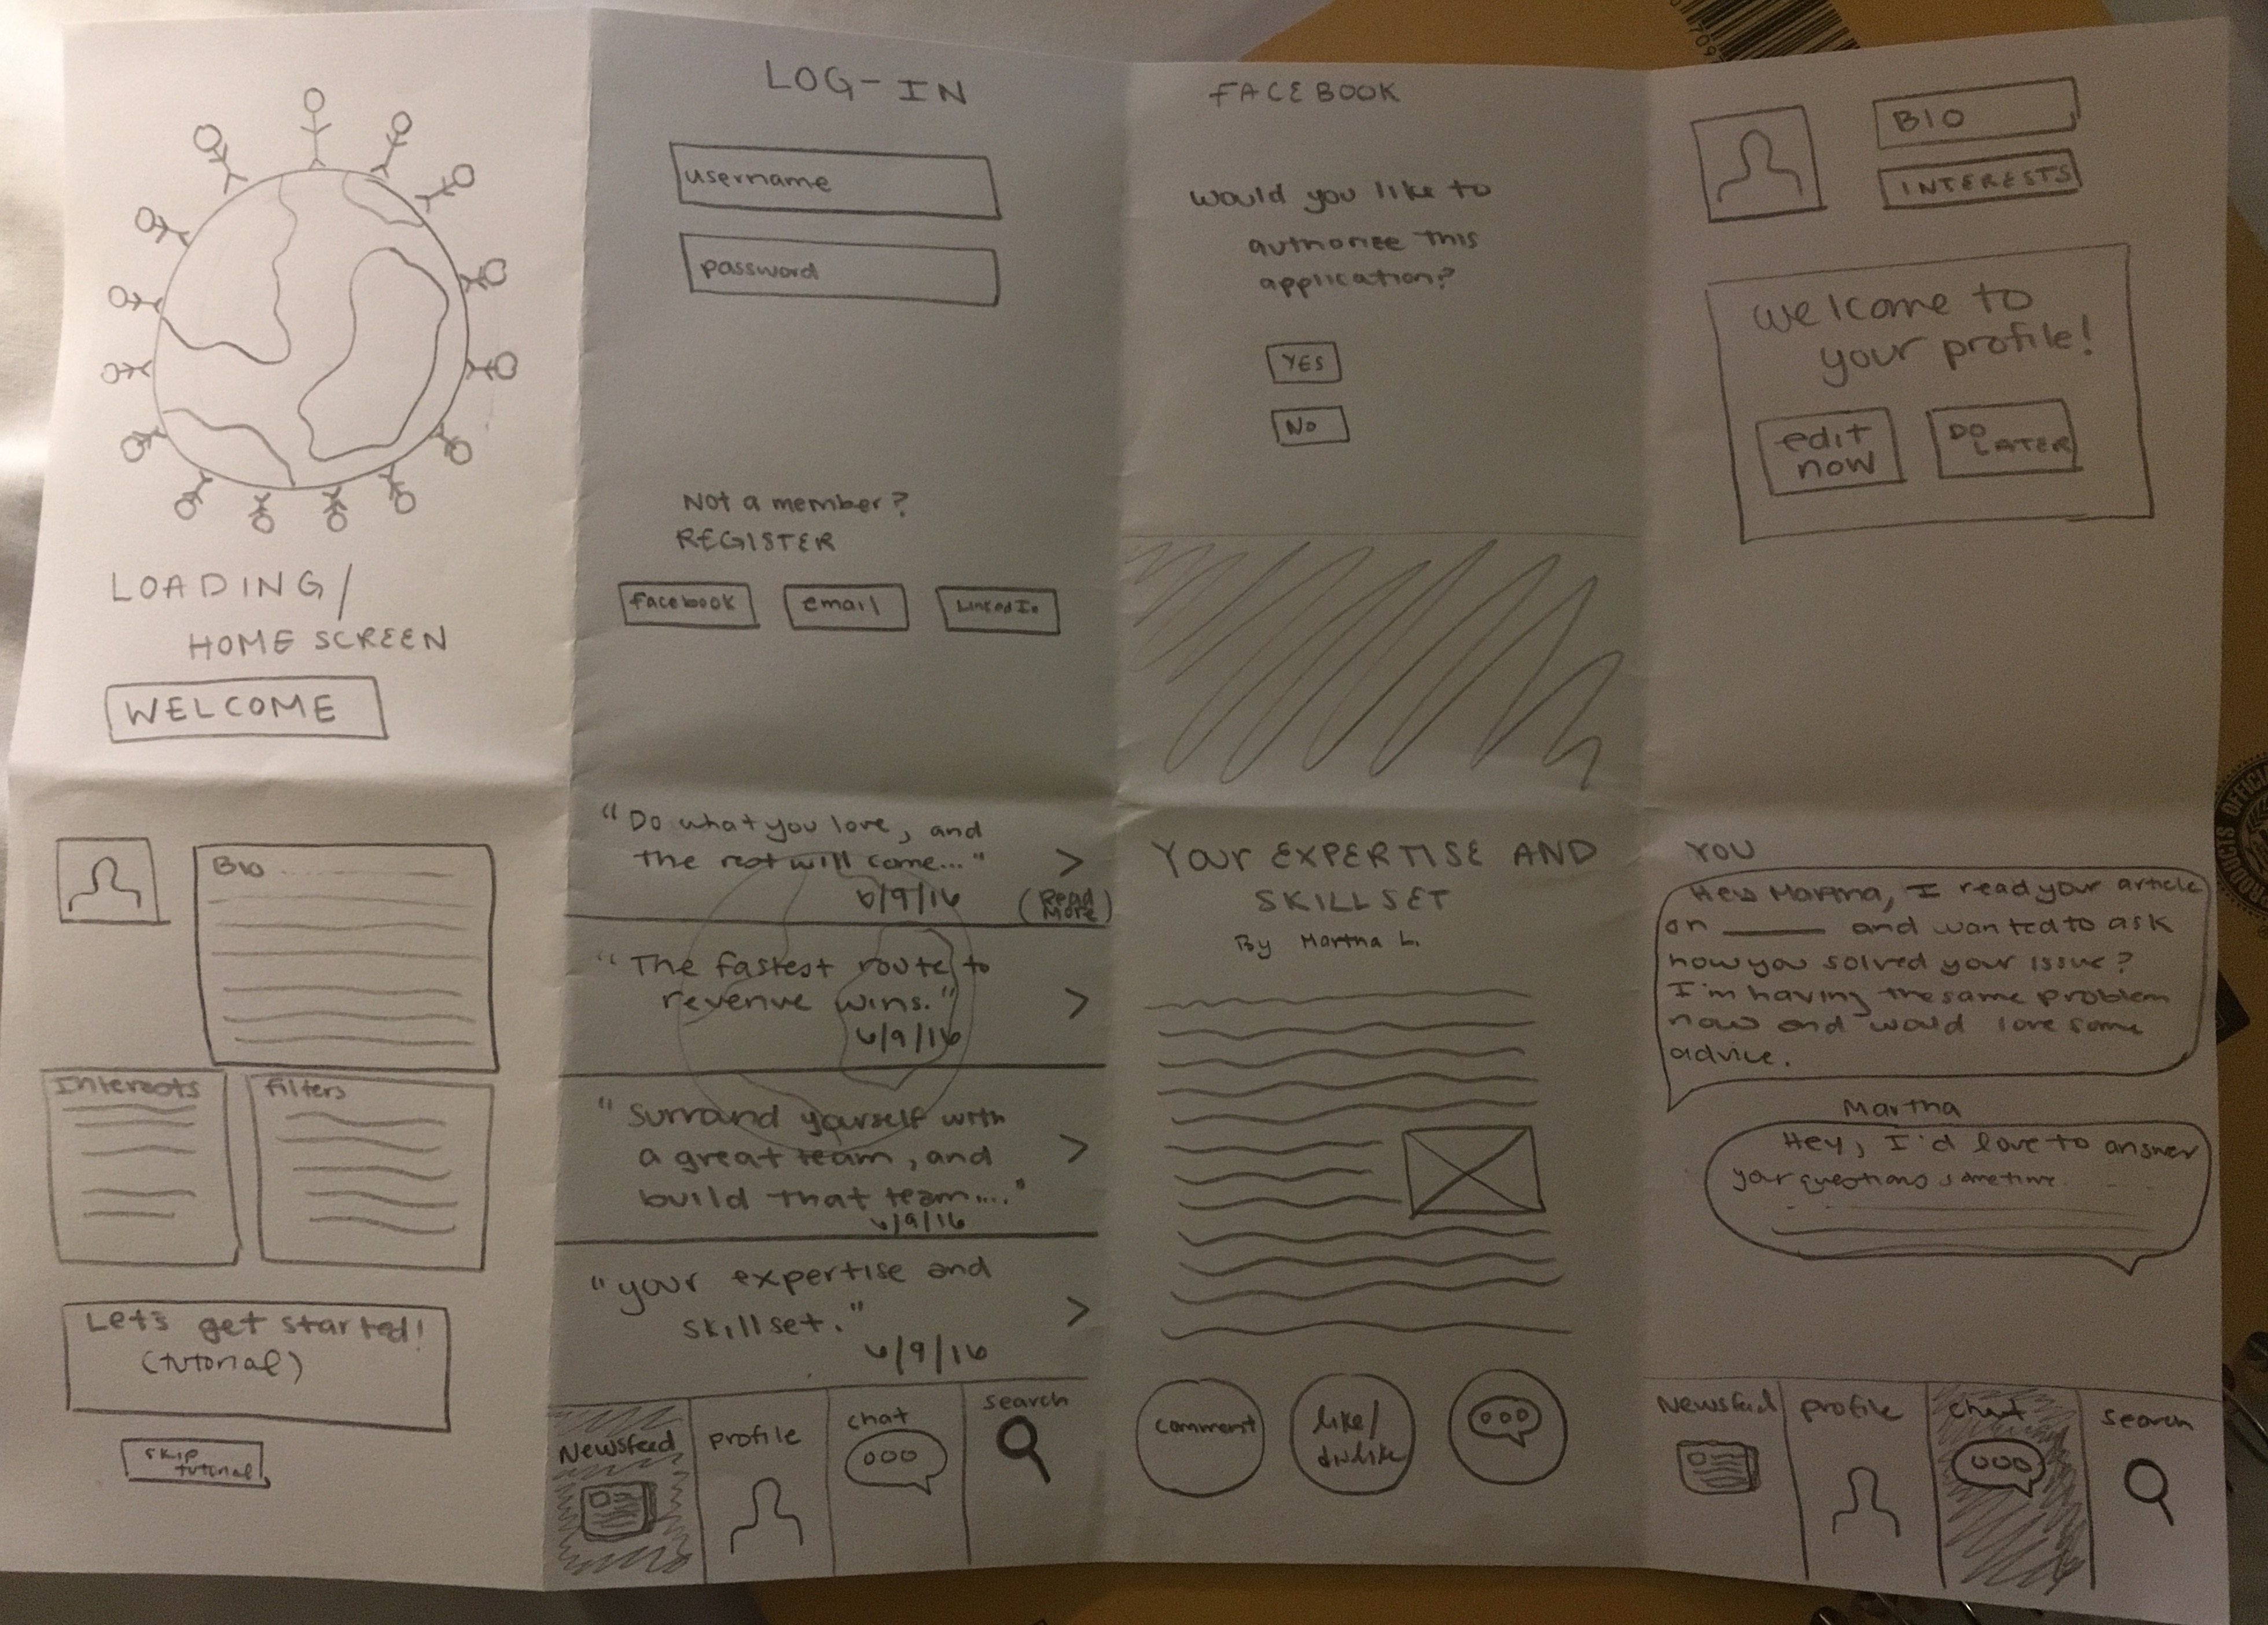 LOADING/
HOME SCREEN
WELCOME
LOG-IN
username
password
Not a member?
REGISTER
facebook
email
LinkedIn
FACEBOOK
would you like to
authorize this
application?
YES
NO
BIO
INTERESTS
welcome to
your profile!
edit
now
DO
LATER
Bio
Interests
Filters
Let's get started!
(tutorial)
skip
tutorial
"Do what you love, and
the rest will come..."
6/9/16
>
(READ
MORE)
"The fastest route to
revenue wins."
6/9/16
>
"Surround yourself with
a great team, and
build that team...."
6/9/16
>
"your expertise and
skillset."
6/9/16
>
Newsfeed
profile
chat
search
Your EXPERTISE AND
SKILLSET
By Martha L.
comment
like/
dislike
YOU
Hey Martha, I read your article
on ______ and wanted to ask
how you solved your issue?
I'm having the same problem
now and would love some
advice.
Martha
Hey, I'd love to answer
your questions sometime
Newsfeed
profile
chat
search
PRODUCTS OFFICI